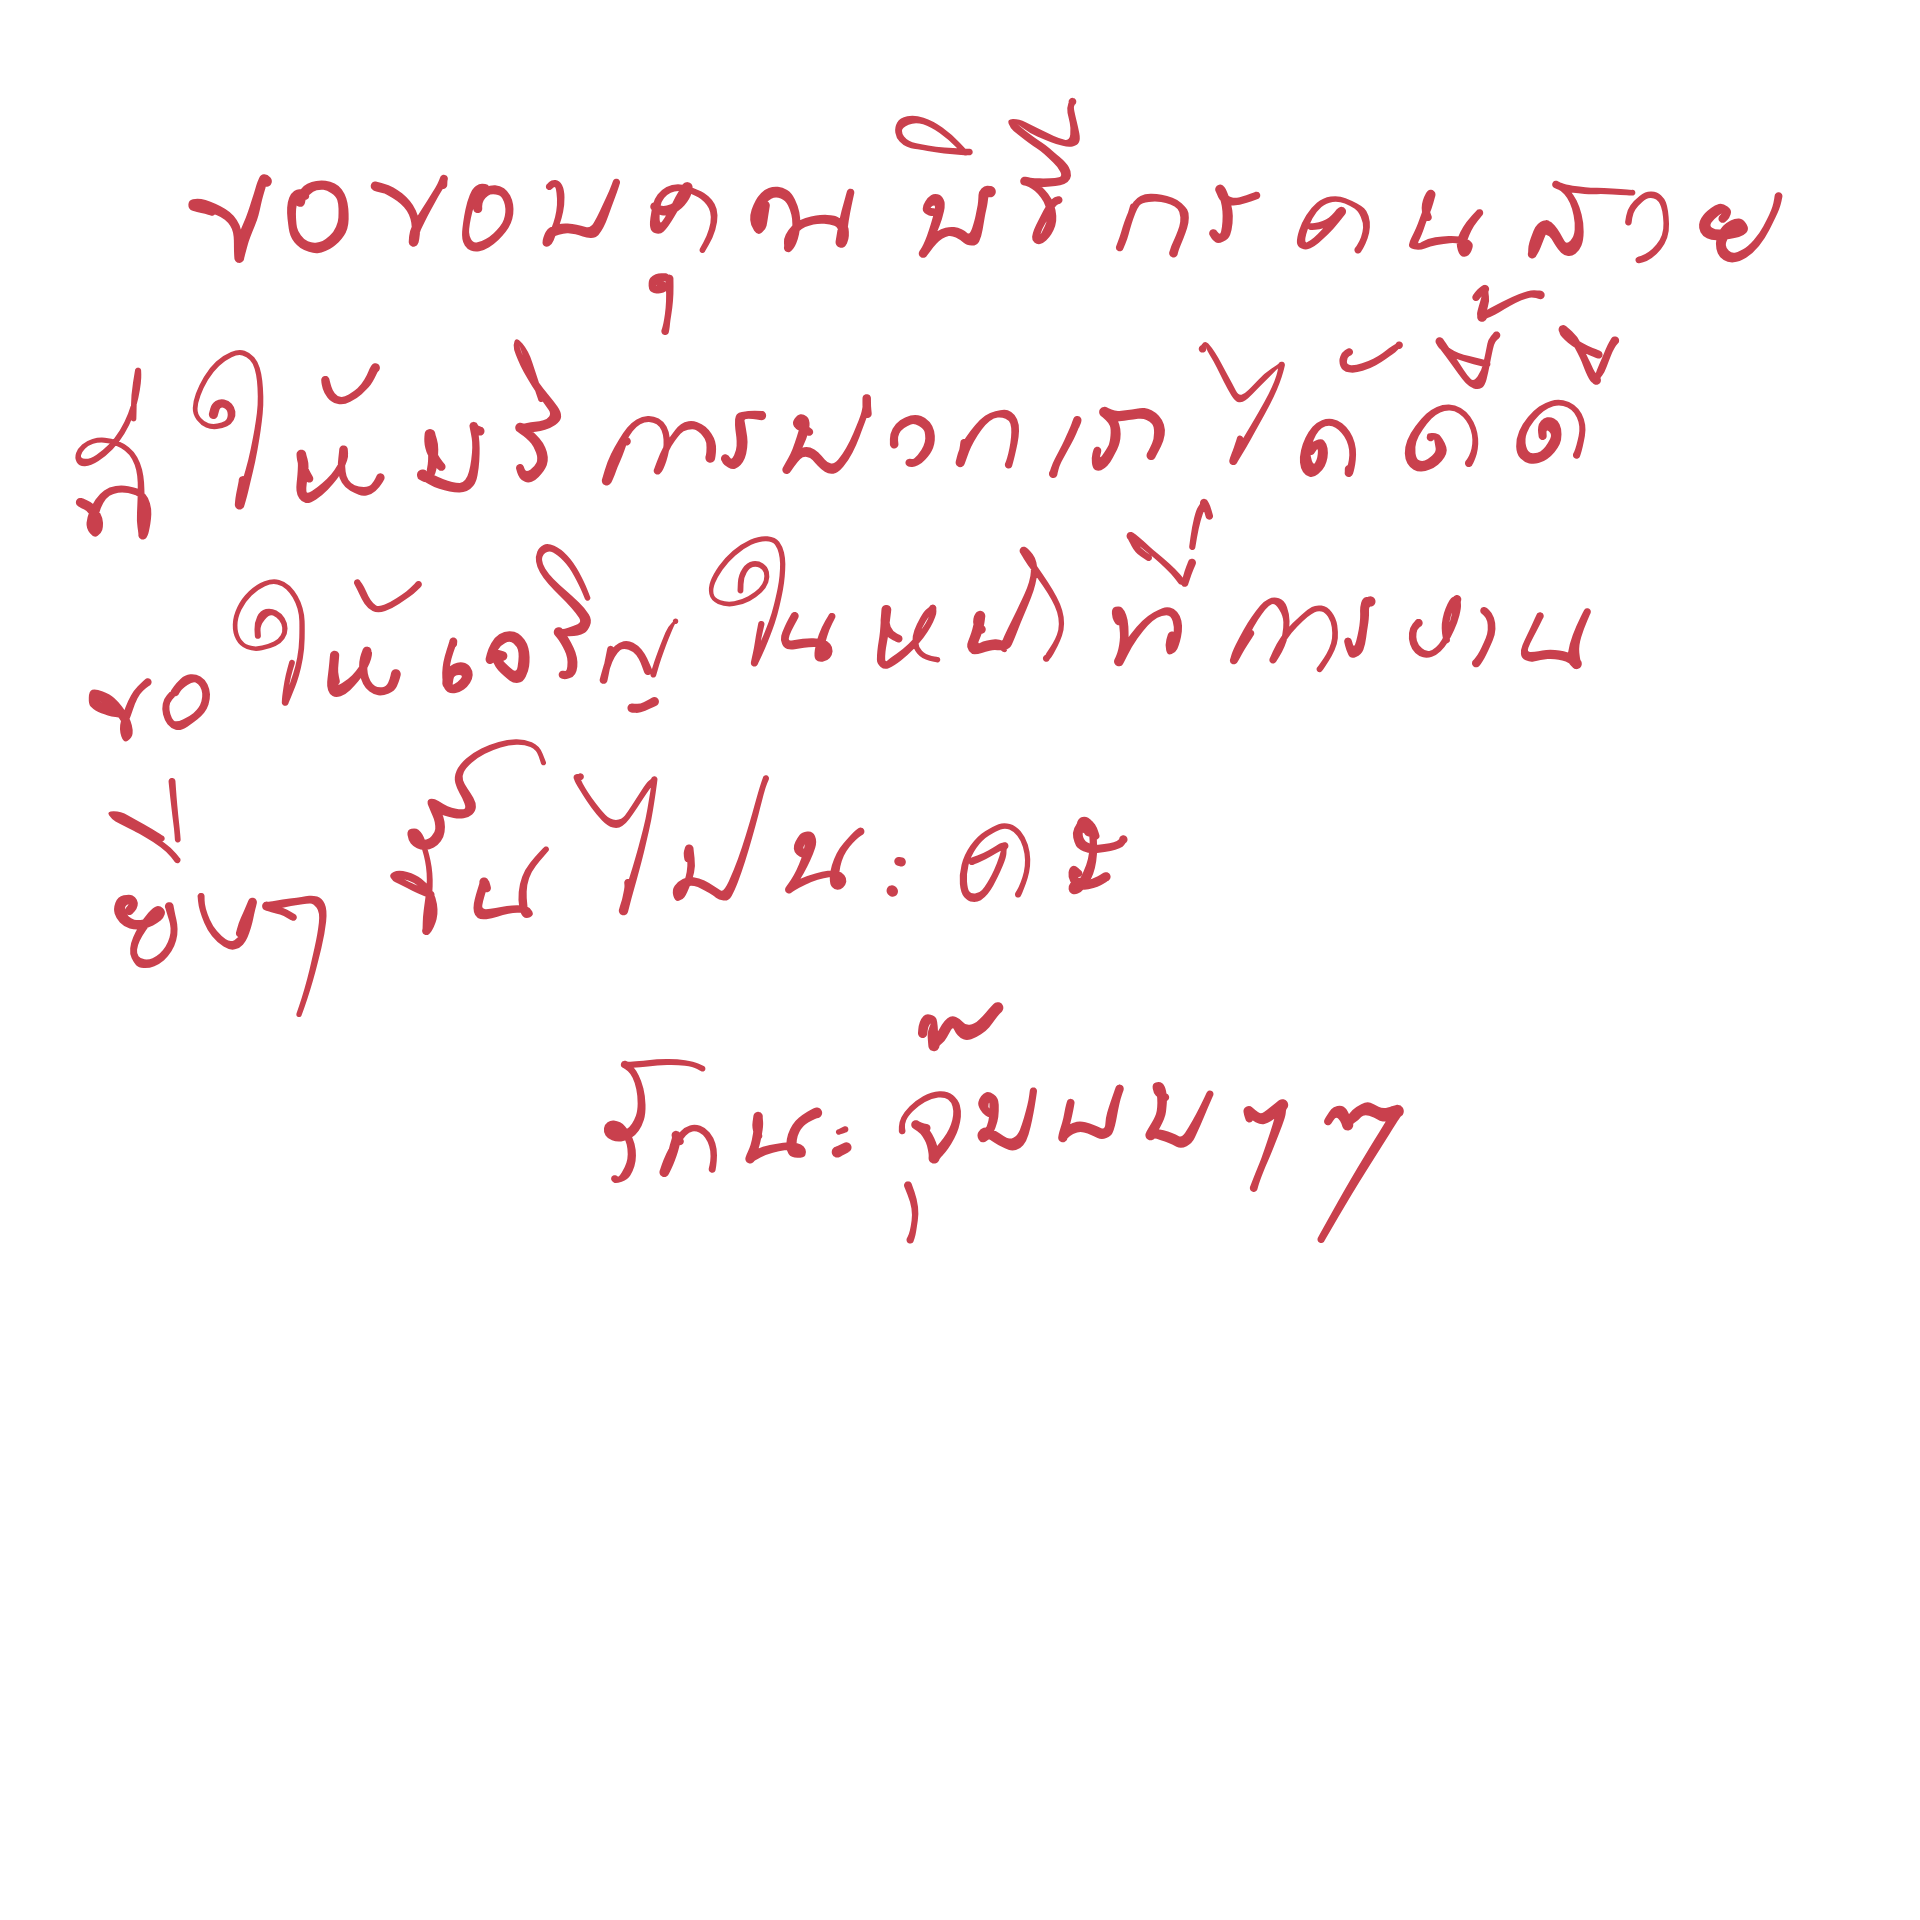 ขอขอบคุณ พิธีกร คนสวย
ให้บริการพวกเรา
ขอให้เจริญ ในหน้าที่การงาน
ยิ่งๆ ขึ้นไปนะคะ
รักนะ จุ๊บบบ ๆ ๆ